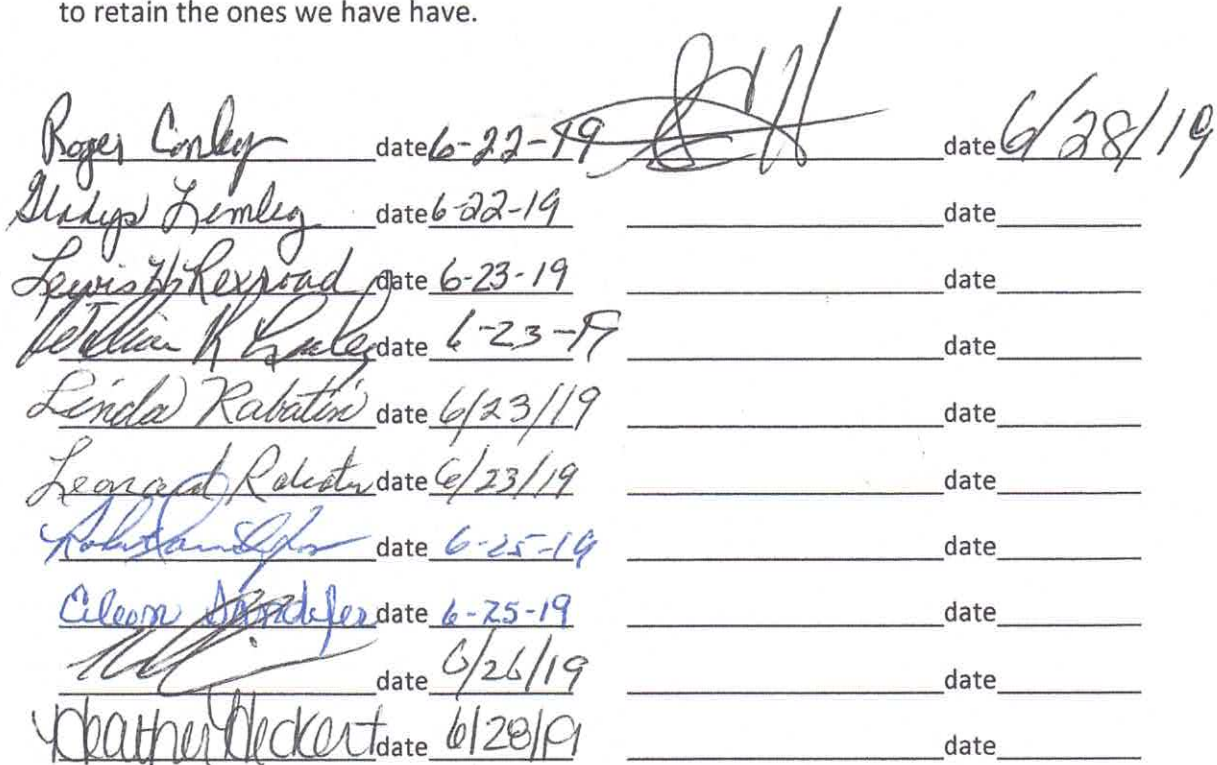 to retain the ones we have have.
Roger Conley date 6-22-19 date 6/28/19
Gladys Lemley date 6-22-19 date
Lewis H Rexroad date 6-23-19 date
William K date 6-23-19 date
Linda Rabatin date 6/23/19 date
Leonard Rabatin date 6/23/19 date
Robert Sandefer date 6-25-19 date
Eileen Sandefer date 6-25-19 date
date 6/26/19 date
Heather Heckert date 6/28/19 date